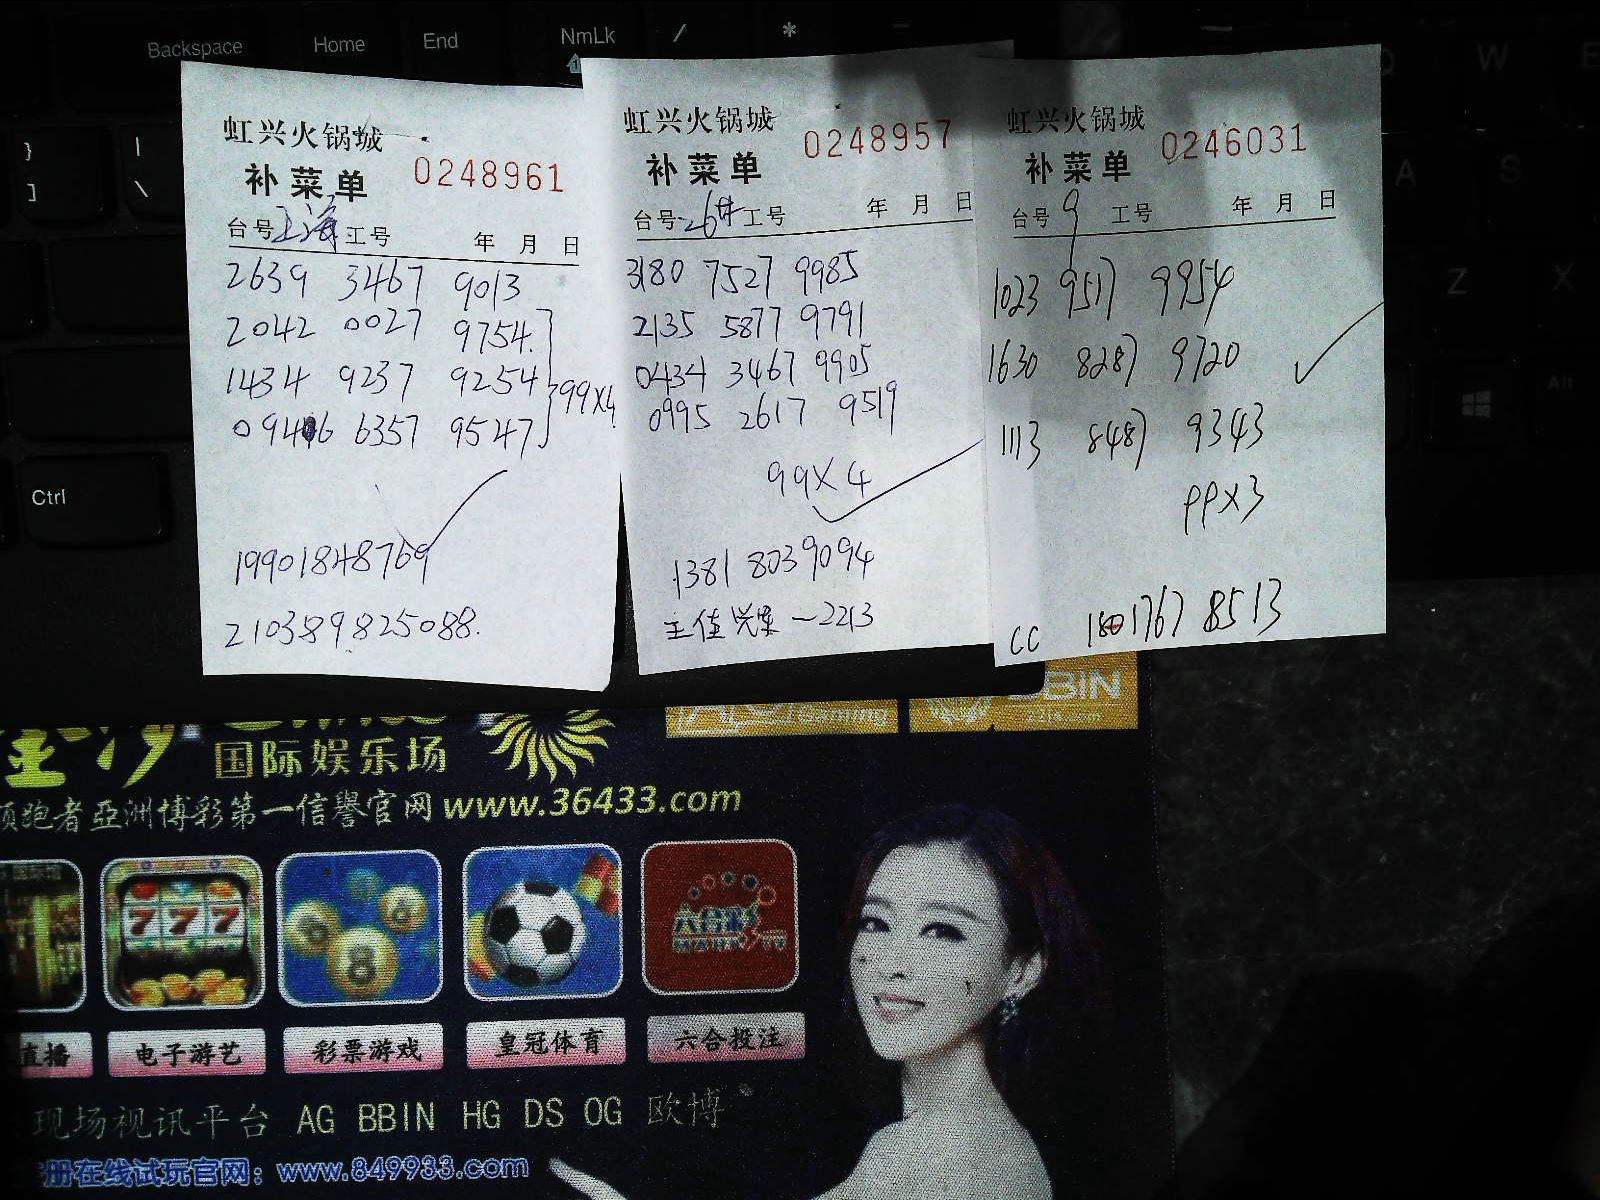 Backspace Home End NmLk / * -
} ] | \
Ctrl
Q W E
A S
Z X
Alt
虹兴火锅城
补菜单 0248961
台号上海 工号 年 月 日
2639 3467 9013
2042 0027 9754
1434 9237 9254 99X4
6357 9547
19901848769
210389825088.
虹兴火锅城
补菜单 0248957
台号 26# 工号 年 月 日
3180 7527 9985
2135 5877 9791
0434 3467 9905
0995 2617 9519
99X4
1381 8039094
王佳 一2213
虹兴火锅城
补菜单 0246031
台号 9 工号 年 月 日
1023 9517 9954
1630 8287 9720
1113 8487 9343
PPX3
CC 1801767 8513
Gaming BBIN
金沙
国际娱乐场
领跑者亞洲博彩第一信誉官网 www.36433.com
777
8
六合彩
直播 电子游艺 彩票游戏 皇冠体育 六合投注
现场视讯平台 AG BBIN HG DS OG 欧博
册在线试玩官网：www.849933.com